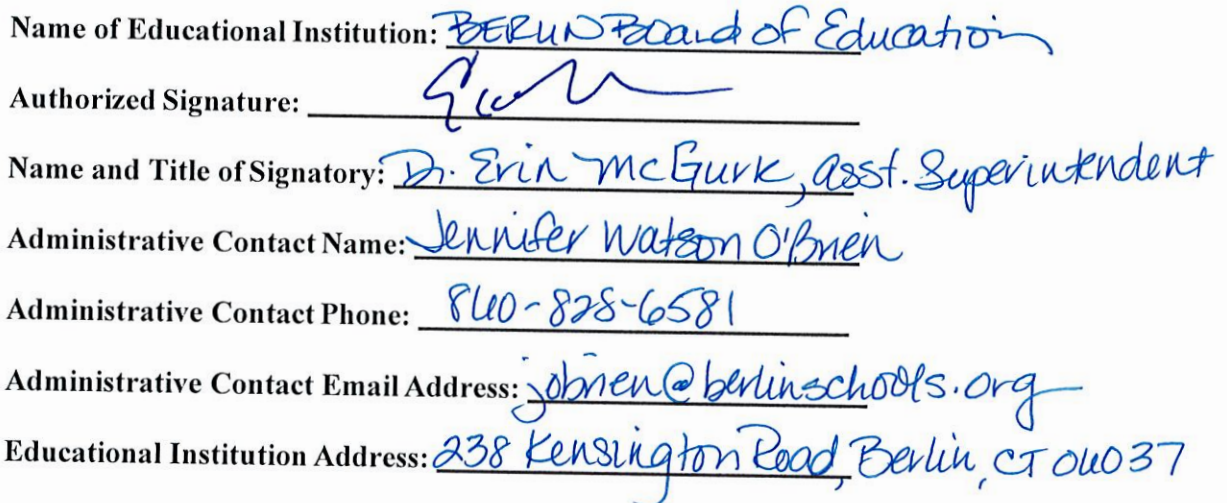 Name of Educational Institution: BERLIN Board of Education
Authorized Signature:
Name and Title of Signatory: Dr. Erin McGurk, asst. Superintendent
Administrative Contact Name: Jennifer Watson O'Brien
Administrative Contact Phone: 860-828-6581
Administrative Contact Email Address: jobrien@berlinschools.org
Educational Institution Address: 238 Kensington Road, Berlin, CT 06037